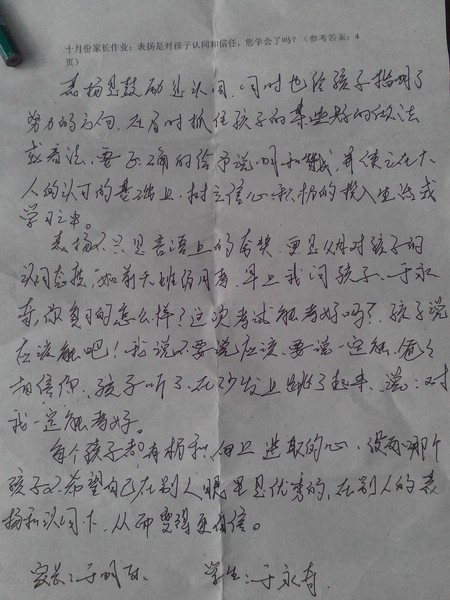 十月份家长作业：表扬是对孩子认同和信任，您学会了吗？（参考答案：4
页）
表扬是鼓励是认同，同时也给孩子指明了
努力的方向，在有时抓住孩子的某些好的做法
或看法，要正确的给予说明和 并使之在大
人的认可的基础上，树立信心积极的投入生活或
学习之中。
表扬不只是言语上的夸奖，更是父母对孩子的
认同态度，如前天班级月考，早上我问孩子，于永
寿，你复习的怎么样？这次考试能考好吗？孩子说
应该能吧！我说不要说应该，要说一定能，爸爸
相信你，孩子听了，在沙发上跳了起来，说：对
我一定能考好。
每个孩子都有积极向上进取的心，没有哪个
孩子不希望自己在别人眼里是优秀的，在别人的表
扬和认同下，从而变得更自信。
家长：于 学生：于永寿